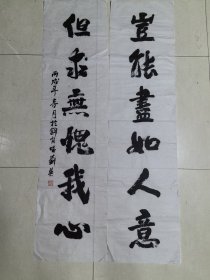 豈能盡如人意
但求無愧我心
丙戌年春月於